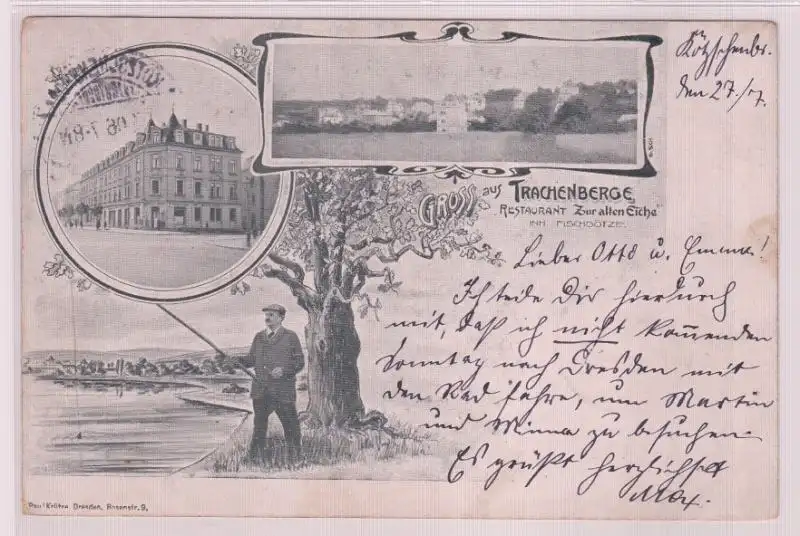 Kötzschenbr.
den 27./7.
GRUSS aus TRACHENBERGE
RESTAURANT "Zur alten Eiche"
INH. FISCHGÖTZE.
Lieber Otto u. Emma!
Ich teile Dir hierdurch
mit, daß ich nicht kommenden
Sonntag nach Dresden mit
den Rad fahre, um Martin
und Minna zu besuchen.
Es grüßt herzlichst
Max.
Paul Krütze, Dresden, Rosenstr. 9.